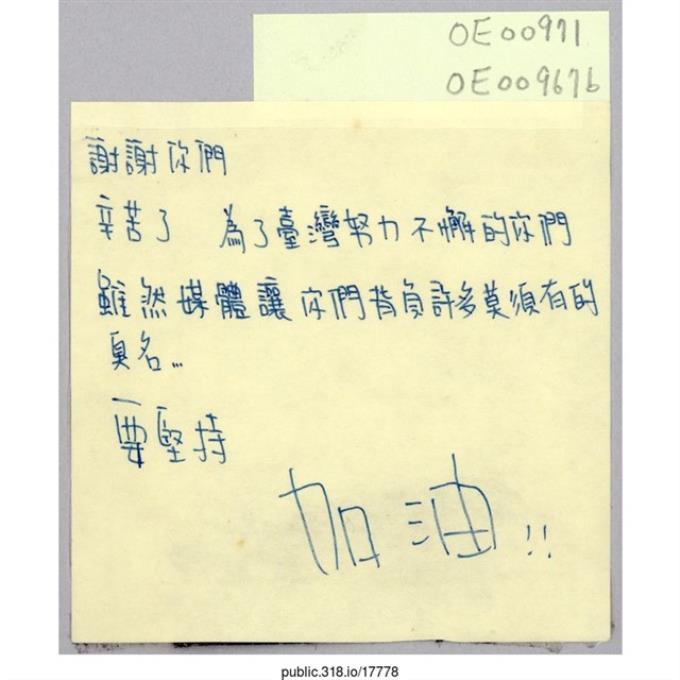 OE00971
OE009676
謝謝你們
辛苦了 為了臺灣努力不懈的你們
雖然媒體讓你們背負許多莫須有的
臭名...
要堅持
加油!!
public.318.io/17778